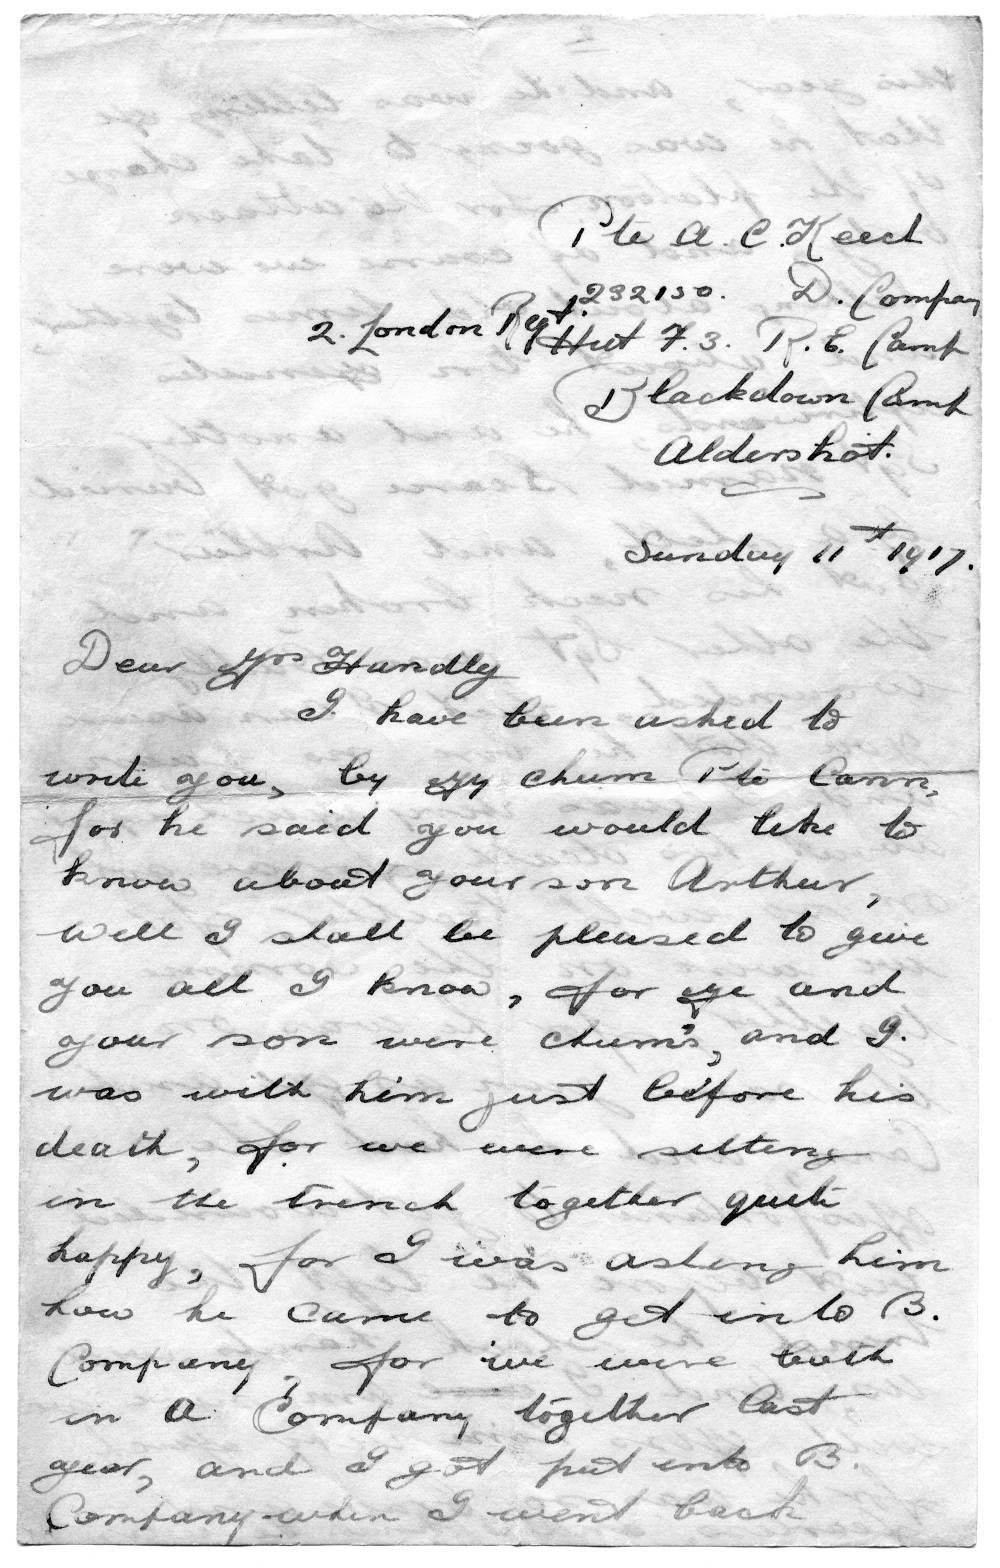 Pte A. C. Keech
232130. D. Company
2. London Rgt. Hut F. 3. R. E. Camp
Blackdown Camp
Aldershot.
Sunday 11th 1917.
Dear Mrs Handly
I have been asked to
write you, by my chum Pte Cann,
for he said you would like to
know about your son Arthur,
Well I shall be pleased to give
you all I know, for me and
your son were chum's, and I.
was with him just before his
death, for we were sitting
in the trench together quite
happy, for I was asking him
how he came to get into B.
Company, for we were both
in A Company together last
year, and I got put into B.
Company when I went back